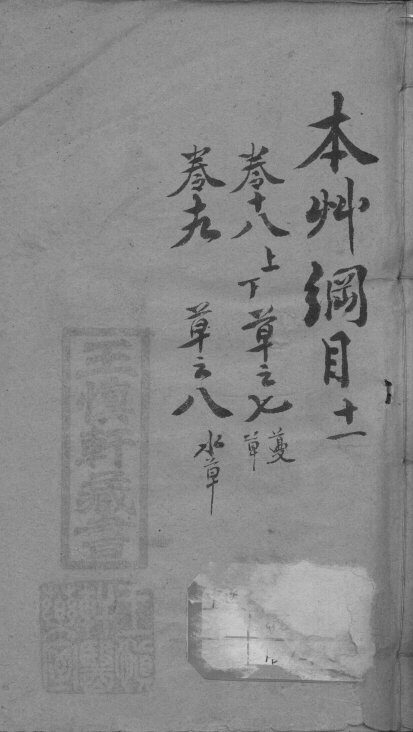 本艸綱目十一
卷十八上下草之七蔓草
卷九草之八水草
藏書